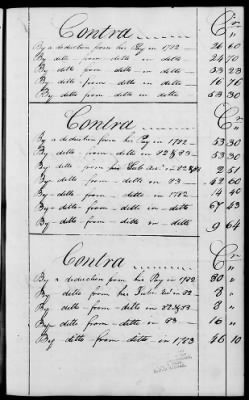 Contra Crs
By a deduction from her Pay in 1782 26 60
By ditto from ditto in ditto 24 70
By ditto from ditto in ditto 33 23
By ditto from ditto in ditto 16 70
By ditto from ditto in ditto 53 30
Contra Crs
By a deduction from her Pay in 1782 53 30
By ditto from ditto in 82 & 83 53 30
By ditto from his Sub. 2 51
By ditto from ditto in 83 42 60
By ditto from ditto in 1782 14 40
By ditto from ditto in ditto 67 43
By ditto from ditto in ditto 9 64
Contra Crs
By a deduction from his Pay in 1782 80 "
By ditto from his in 82 8 "
By ditto from ditto in 82 & 83 8 "
By ditto from ditto in 83 16 "
By ditto from ditto in 1783 46 10